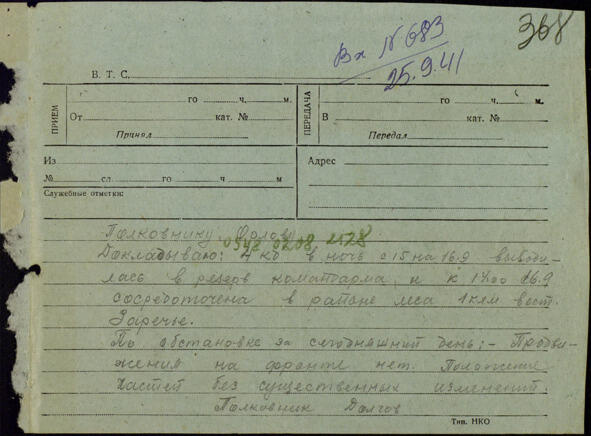 368
Вх №683
25.9.41
В. Т. С.
ПРИЕМ
го ч. м.
От кат. №
Принял
ПЕРЕДАЧА
го ч. м.
В кат. №
Передал
Из
№ сл. го ч м
Служебные отметки:
Адрес
Полковнику Орлову
0542 0208 2528
Докладываю: 4 кд в ночь с 15 на 16.9 выводи-
лась в резерв командарма и к 16.9
сосредоточена в районе леса 1 клм вост.
Заречье.
По обстановке за сегодняшний день:- Продви-
жения на фронте нет. Положение
частей без существенных изменений.
Полковник Долгов
Тип. НКО